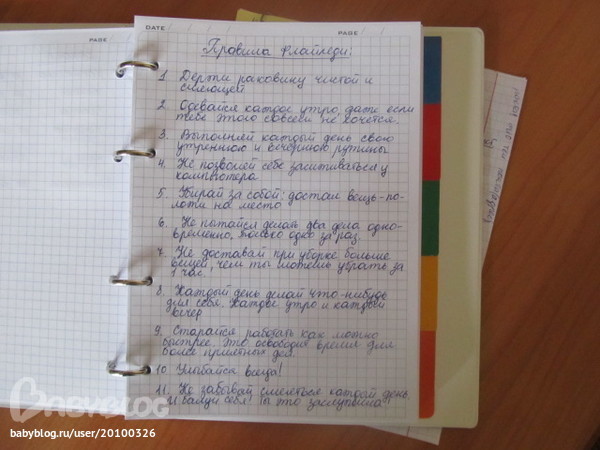 DATE
PAGE
PAGE
Правила Флайледи:
1. Держи раковину чистой и
сияющей
2. Одевайся каждое утро, даже если
тебе этого совсем не хочется.
3. Выполняй каждый день свою
утреннюю и вечернюю рутины
4. Не позволяй себе засиживаться у
компьютера
5. Убирай за собой: достал вещь-по-
ложи на место
6. Не пытайся делать два дела одно-
временно, только одно за раз.
7. Не доставай при уборке больше
вещей, чем ты можешь убрать за
1 час.
8. Каждый день делай что-нибудь
для себя. Каждое утро и каждый
вечер
9. Старайся работать как можно
быстрее. Это освободит время для
более приятных дел.
10. Улыбайся всегда!
11. Не забывай смеяться каждый день.
И балуй себя! Ты это заслужила!
BABYBLOG
babyblog.ru/user/20100326